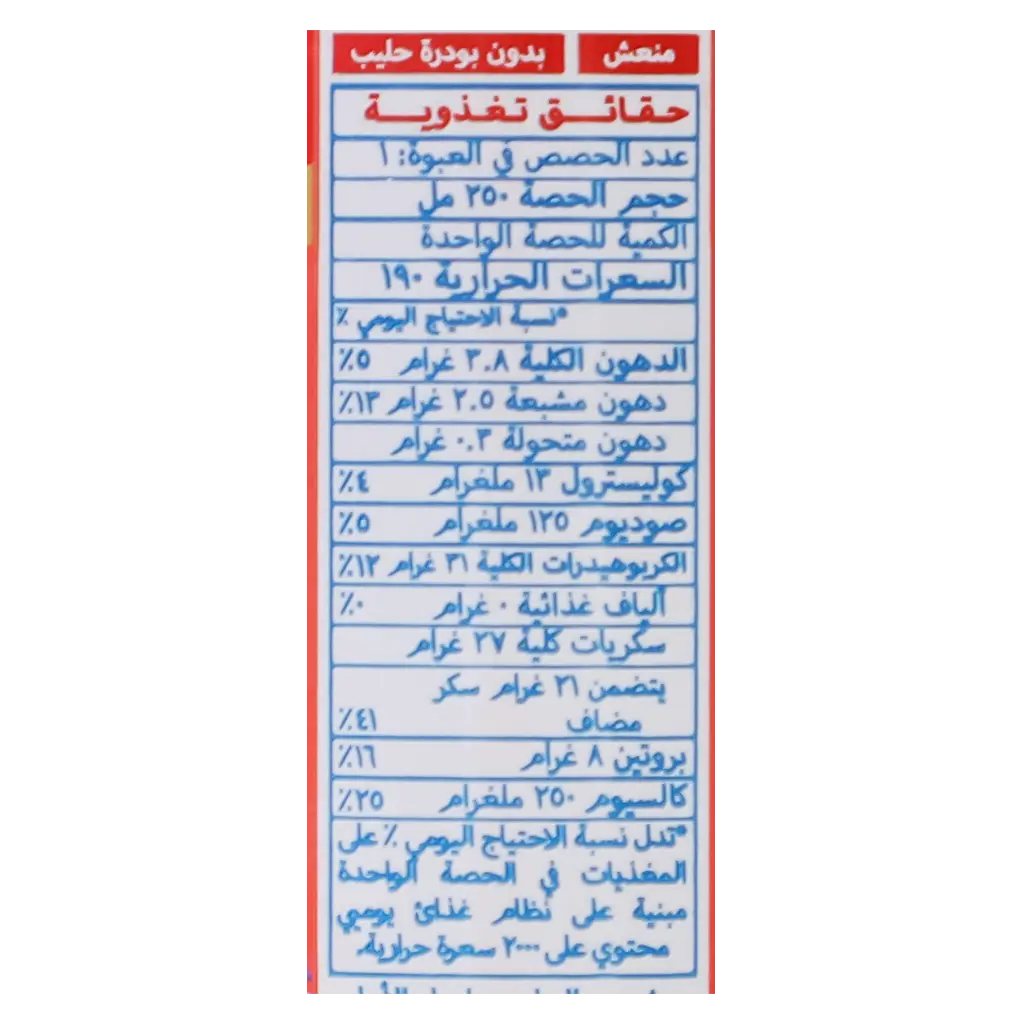 منعش
بدون بودرة حليب
حقائق تغذوية
عدد الحصص في العبوة: ١
حجم الحصة ٢٥٠ مل
الكمية للحصة الواحدة
السعرات الحرارية ١٩٠
*نسبة الاحتياج اليومي ٪
الدهون الكلية ٣.٨ غرام ٥٪
دهون مشبعة ٢.٥ غرام ١٣٪
دهون متحولة ٠.٣ غرام
كوليسترول ١٣ ملغرام ٤٪
صوديوم ١٢٥ ملغرام ٥٪
الكربوهيدرات الكلية ٣١ غرام ١٢٪
ألياف غذائية ٠ غرام ٠٪
سكريات كلية ٢٧ غرام
يتضمن ٢١ غرام سكر
مضاف ٤١٪
بروتين ٨ غرام ١٦٪
كالسيوم ٢٥٠ ملغرام ٢٥٪
*تدل نسبة الاحتياج اليومي ٪ على
المغذيات في الحصة الواحدة
مبنية على نظام غذائ يوميي
محتوي على ٢٠٠٠ سعرة حرارية.